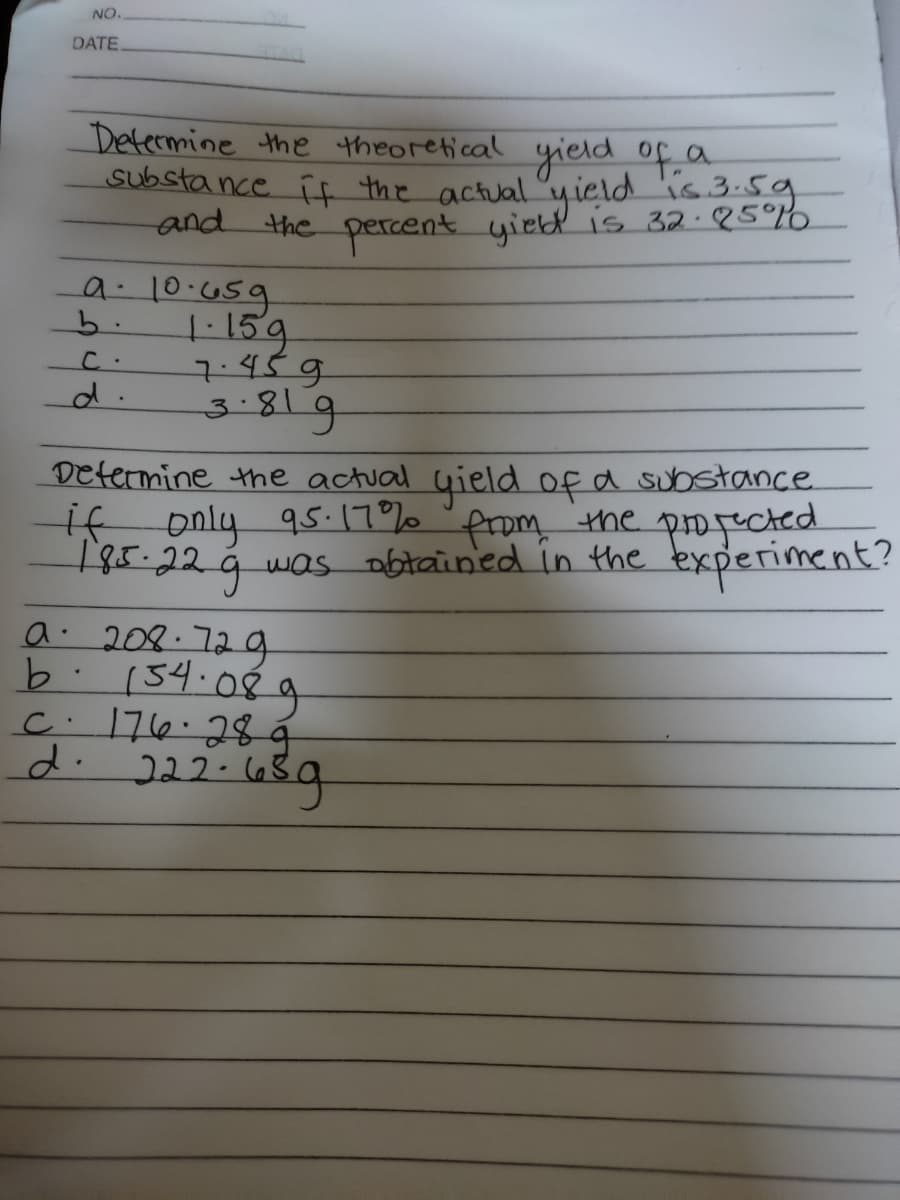 NO.
DATE
Determine the theoretical yield of a
substance if the actual yield is 3.5g
and the percent yield is 32.85%
a. 10.65g
b. 1.15g
c. 7.45 g
d. 3.81 g
Determine the actual yield of a substance
if only 95.17% from the projected
185.22 g was obtained in the experiment?
a. 208.72 g
b. 154.08 g
c. 176.28 g
d. 222.63g